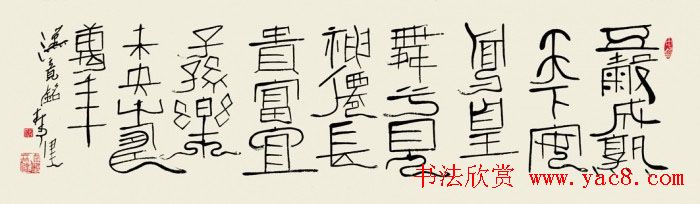 五穀成熟
天下風
鳳皇
舞兮見
神僊長
貴富宜
子孫樂
未央壽
萬年
漢竟銘 林健
书法欣赏 www.yac8.com